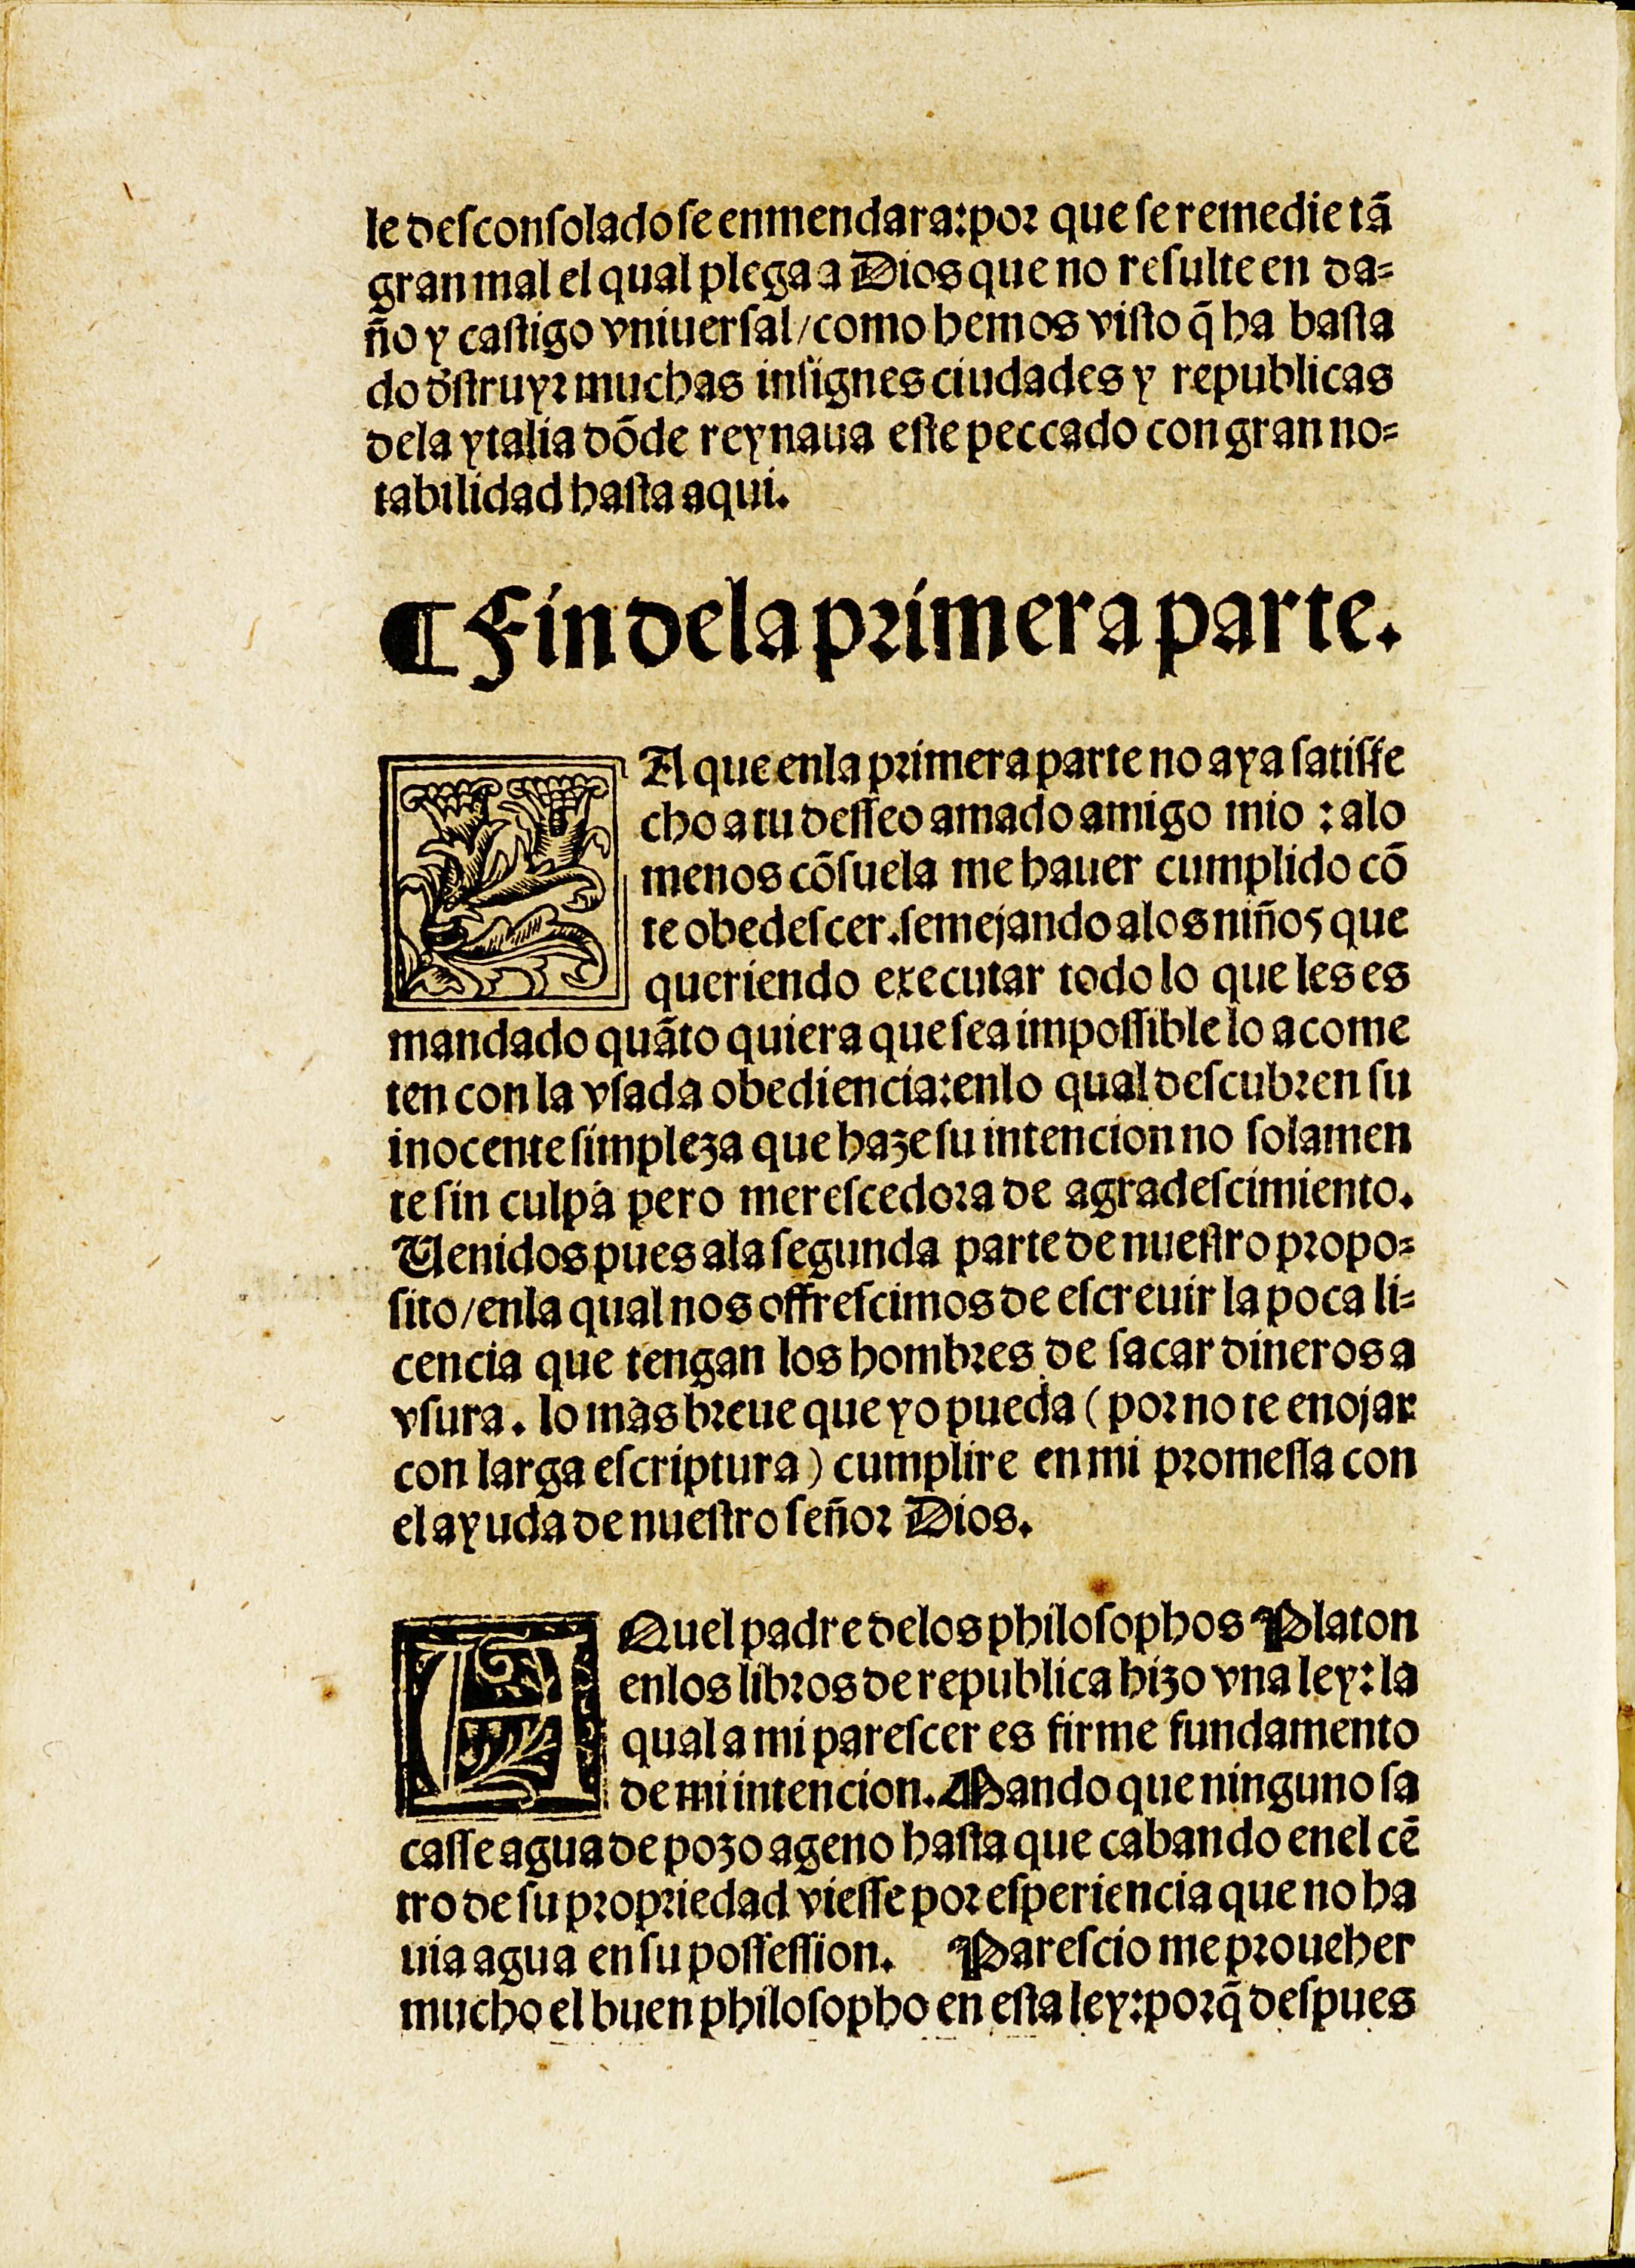 le desconsolado se enmendara: por que se remedie tã
gran mal el qual plega a Dios que no resulte en da=
ño y castigo vniuersal/como hemos visto q̃ ha basta
do d̃struyr muchas insignes ciudades y republicas
dela ytalia dõde reynaua este peccado con gran no=
tabilidad hasta aqui.
¶ Fin dela primera parte.
YA que enla primera parte no aya satisfe
cho a tu desseo amado amigo mio : alo
menos cõsuela me hauer cumplido cõ
te obedescer. semejando alos niños que
queriendo executar todo lo que les es
mandado quãto quiera que sea impossible lo acome
ten con la vsada obediencia: enlo qual descubren su
inocente simpleza que haze su intencion no solamen
te sin culpa pero merescedora de agradescimiento.
Uenidos pues ala segunda parte de nuestro propo=
sito/enla qual nos offrescimos de escreuir la poca li=
cencia que tengan los hombres de sacar dineros a
vsura. lo mas breue que yo pueda ( por no te enojar
con larga escriptura ) cumplire en mi promessa con
el ayuda de nuestro señor Dios.
AQuel padre delos philosophos Platon
enlos libros de republica hizo vna ley: la
qual a mi parescer es firme fundamento
de mi intencion. Mando que ninguno sa
casse agua de pozo ageno hasta que cabando enel cẽ
tro de su propriedad viesse por esperiencia que no ha
uia agua en su possession. Parescio me proueher
mucho el buen philosopho en esta ley: porq̃ despues